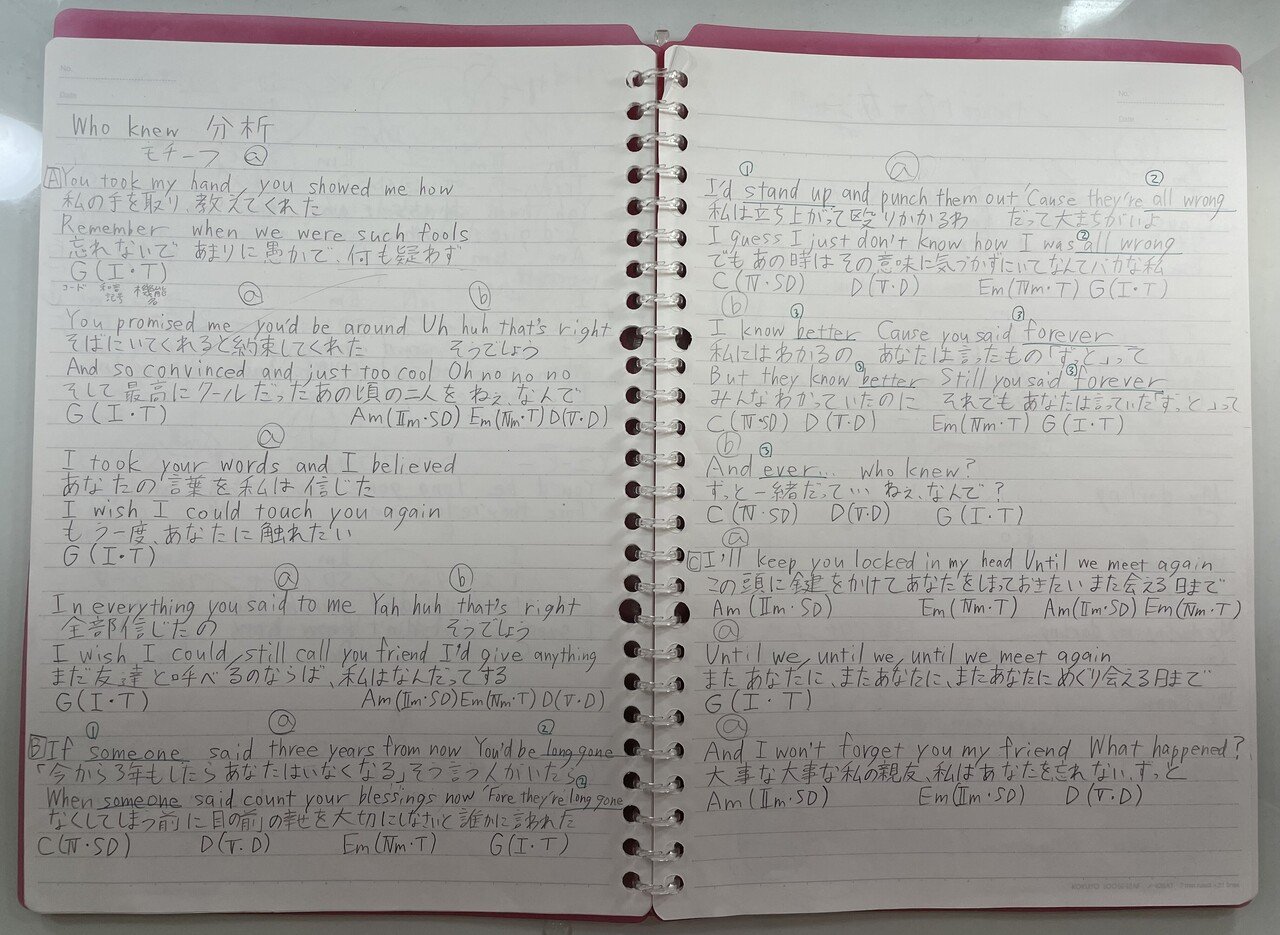 No.
Date
Who knew 分析
モチーフ ⓐ
A You took my hand, you showed me how
私の手を取り、教えてくれた
Remember when we were such fools
忘れないで あまりに愚かで、何も疑わず
G (I・T)
コード 和音記号 機能名 ⓐ ⓑ
You promised me you'd be around Uh huh that's right
そばにいてくれると約束してくれた そうでしょう
And so convinced and just too cool Oh no no no
そして最高にクールだったあの頃の二人を ねぇ、なんで
G (I・T) Am (IIm・SD) Em (IVm・T) D (V・D)
ⓐ
I took your words and I believed
あなたの言葉を私は信じた
I wish I could touch you again
もう一度、あなたに触れたい
G (I・T)
ⓐ ⓑ
In everything you said to me Yah huh that's right
全部信じたの そうでしょう
I wish I could still call you friend I'd give anything
まだ友達と呼べるのならば、私はなんだってする
G (I・T) Am (IIm・SD) Em (IVm・T) D (V・D)
① ⓐ ②
B If someone said three years from now You'd be long gone
「今から3年もしたらあなたはいなくなる」そう言う人がいたら ②
When someone said count your blessings now 'Fore they're long gone
なくしてしまう前に目の前の幸せを大切にしなさいと誰かに言われた
C (IV・SD) D (V・D) Em (IVm・T) G (I・T)
No.
Date
① ⓐ ②
I'd stand up and punch them out 'Cause they're all wrong
私は立ち上がって殴りかかるわ だって大まちがいよ
I guess I just don't know how I was ② all wrong
でもあの時はその意味に気づかずにいてなんてバカな私
C (IV・SD) D (V・D) Em (IVm・T) G (I・T)
ⓑ ③ ③
I know better Cause you said forever
私にはわかるの あなたは言ったもの「ずっと」って
But they know ③ better Still you said ③ forever
みんなわかっていたのに それでもあなたは言っていた「ずっと」って
C (IV・SD) D (V・D) Em (IVm・T) G (I・T)
ⓑ ③
And ever... who knew?
ずっと一緒だってい ねぇ、なんで?
C (IV・SD) D (V・D) G (I・T)
ⓐ
C I'll keep you locked in my head Until we meet again
この頭に鍵をかけてあなたをしまっておきたい また会える日まで
Am (IIm・SD) Em (IVm・T) Am (IIm・SD) Em (IVm・T)
ⓐ
Until we, until we, until we meet again
またあなたに、またあなたに、またあなたにめぐり会える日まで
G (I・T)
ⓐ
And I won't forget you my friend What happened?
大事な大事な私の親友、私はあなたを忘れない、ずっと
Am (IIm・SD) Em (IIm・SD) D (V・D)